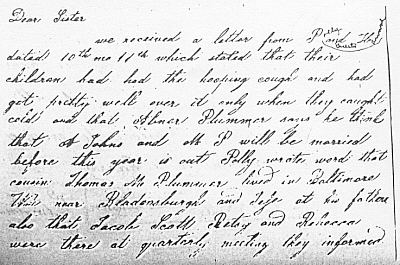 Dear Sister
we received a letter from P Polly and Aunts
dated 10th mo 11th which stated that their
children had had the hooping cough and had
got pretty well over it only when they caught
cold and that Abner Plummer says he thinks
that A Johns and M P will be married
before this year is out Polly writes word that
cousin Thomas M Plummer lived in Baltimore
near Bladensburgh and at his fathers
also that Jacob Scott Betsy and Rebecca
were there at quarterly meeting they informed